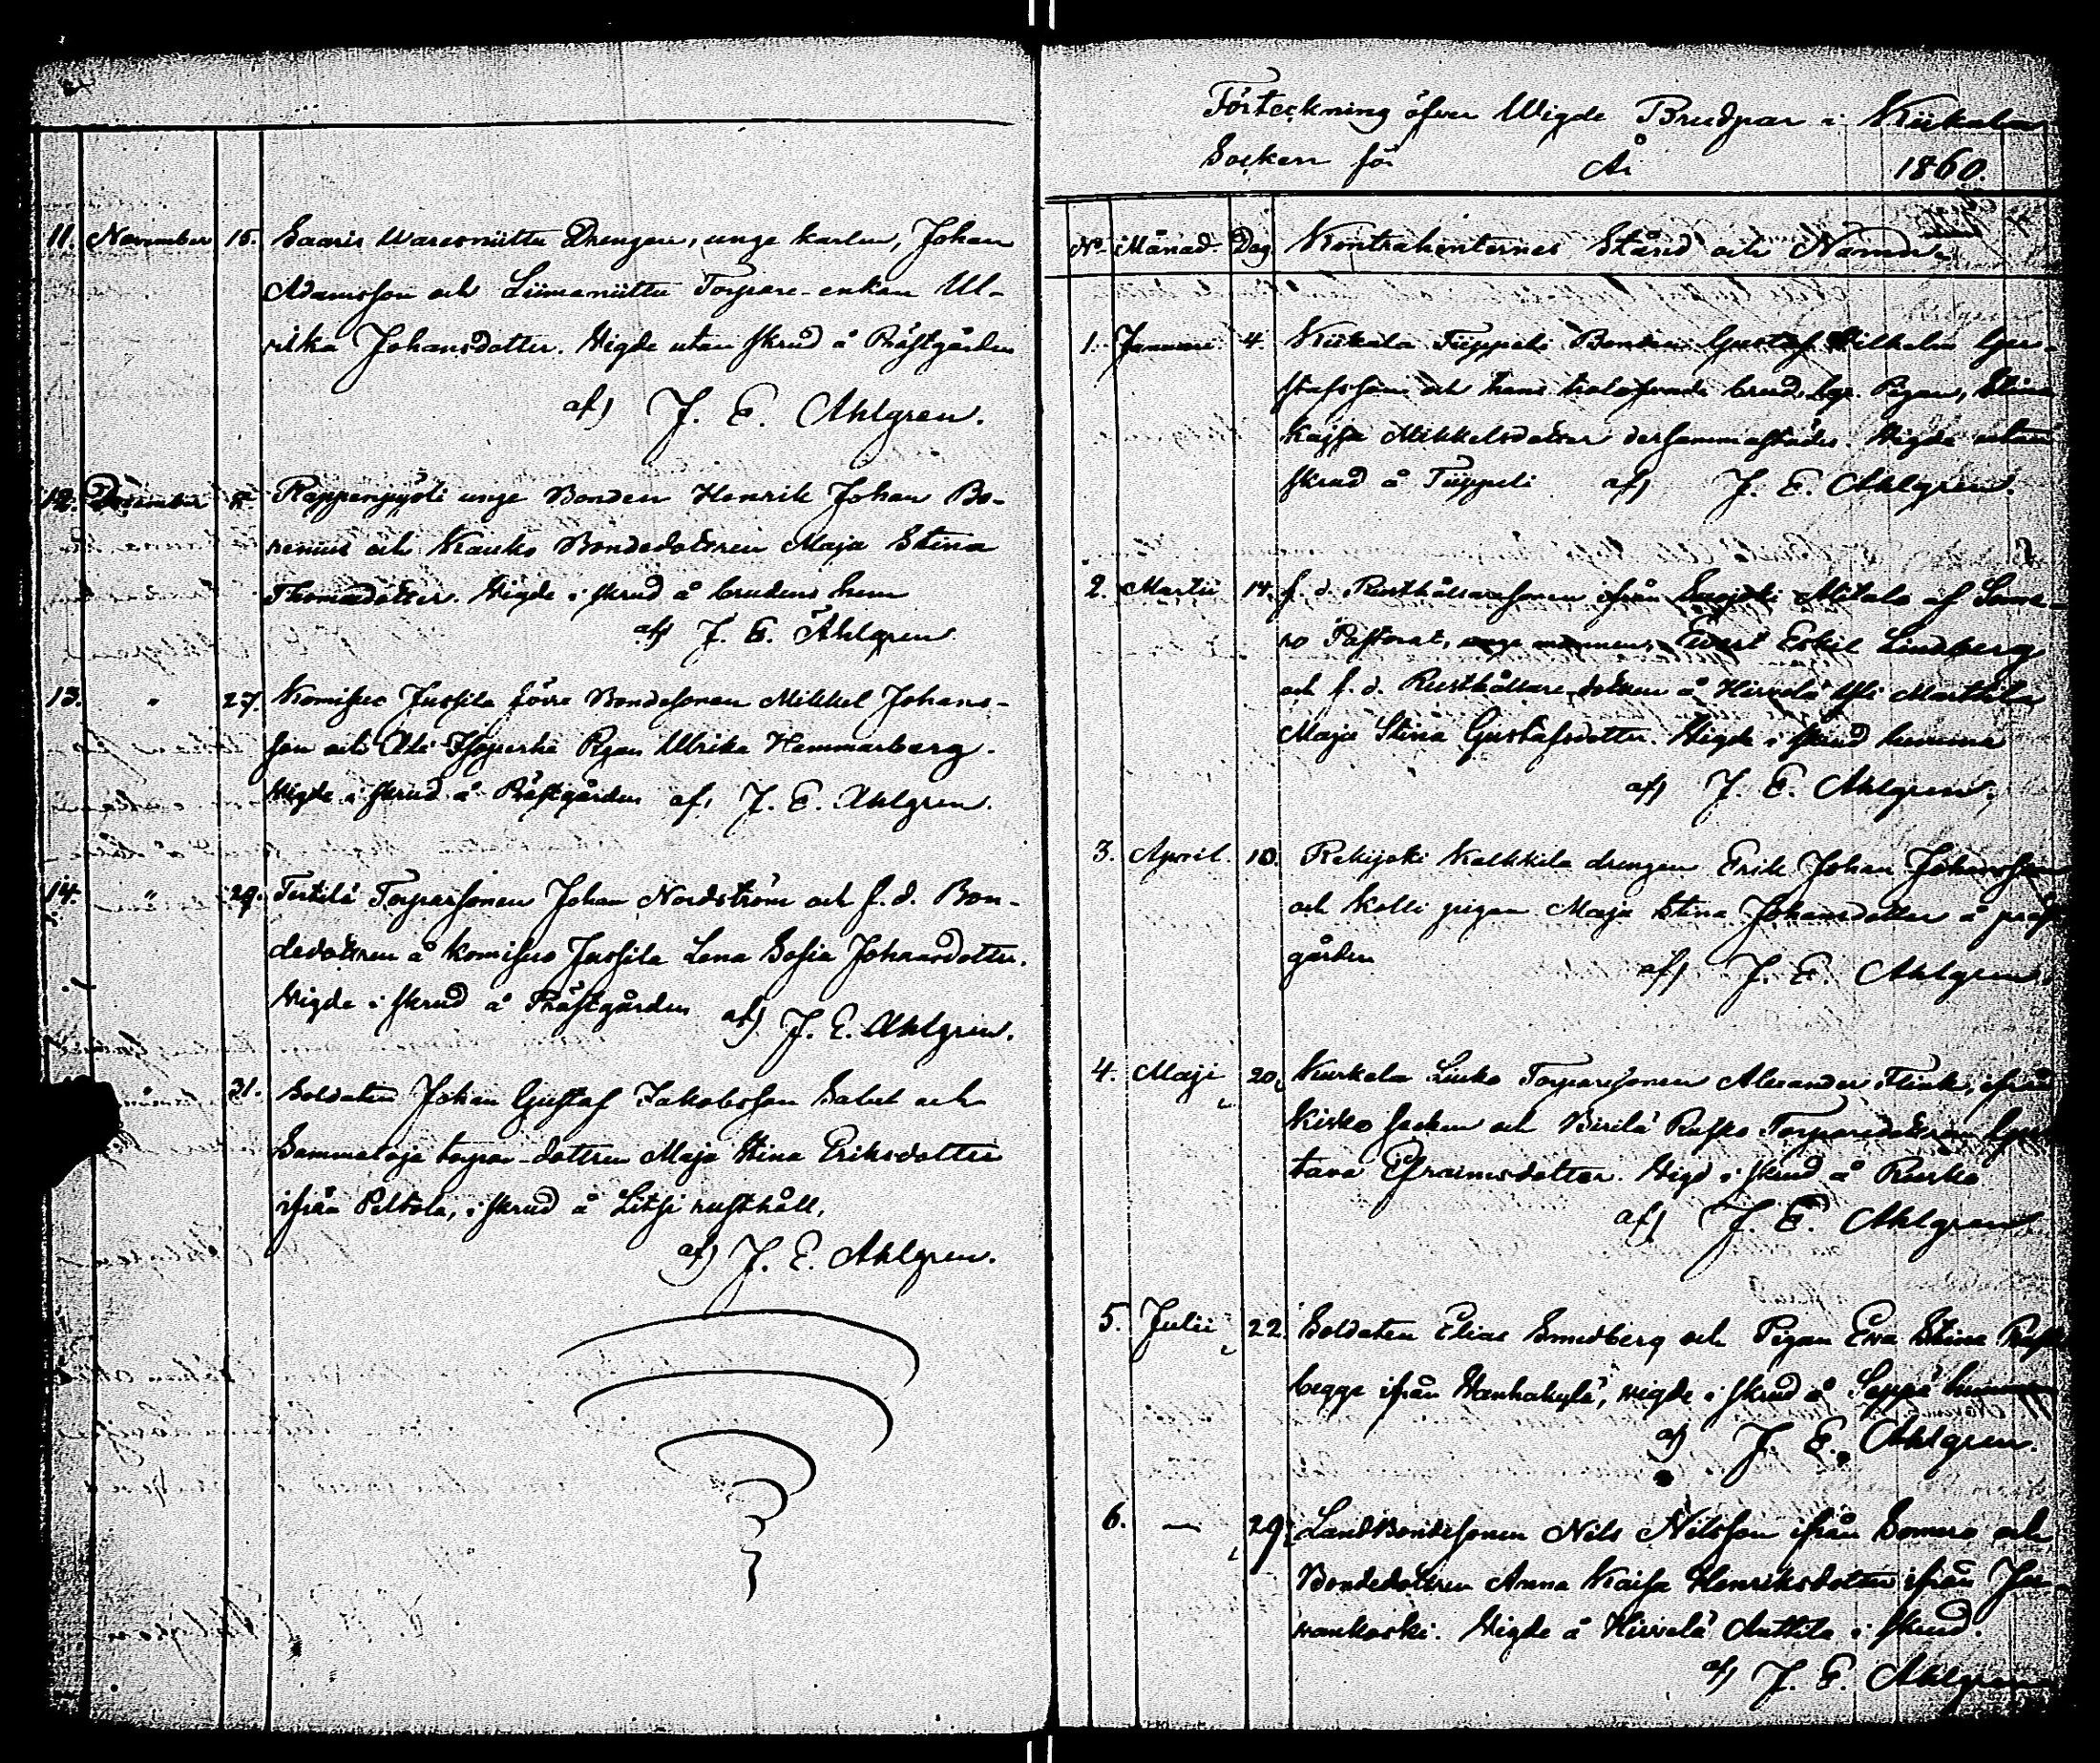 11. November 15. Saaris Waresniittu Drengen, unge karlen, Johan
Adamsson och Liimaniittu Torpare-enkan Ul-
rika Johansdotter. Wigde utan skrud å Prästgården
af) J. E. Ahlgren.
12. December Rappenpyöli unge Bonden Henrik Johan Bo-
renius och Kauko Bondedottren Maja Stina
Thomasdotter. Wigde i skrud å brudens hem
af) J. E. Ahlgren
13. " 27. Komisuo Jussila förre Bondesonen Mikkel Johans-
son och Pigan Ulrika Hammarberg.
Wigde i skrud å Prästgården af) J. E. Ahlgren.
14. " 29. Torparsonen Johan Nordström och f. d. Bon-
dedottren å Komisuo Jussila Lena Sofia Johansdotter.
Wigde i skrud å Prästgården af) J. E. Ahlgren.
" 31. Soldaten Johan Gustaf Jakobsson Salut och
Sammaloja torpar-dottren Maja Stina Eriksdotter
ifrån Peltola, i skrud å Litsi rusthåll,
af) J. E. Ahlgren.
Förteckning öfver Wigde Brudpar i Kiikala
Socken för År 1860.
No Månad. Dag. Kontrahenternes Stånd och Namn.
1. Januari 4. Kiikala Tiippeli Bonden Gustaf Wilhelm Gus-
stafsson och hans trolofvade brud, Pigan, Stina
Kajsa Mikkelsdotter dersammastädes. Wigde utan
skrud å Tiippeli af) J. E. Ahlgren.
2. Martii 14. f. d. Rusthållaresonen ifrån af Some-
ro Pastorat, unge mannen, Evert Eskil Lindberg
och f. d. Rusthållare-dottren å Hirvelä Marttila
Maja Stina Gustafsdotter. Wigde i skrud
af) J. E. Ahlgren.
3. April. 10. Rekijoki Kalkkila drengen Erik Johan Johansson
och Kolli pigan Maja Stina Johansdotter å präst
gården af) J. E. Ahlgren.
4. Maji 20. Kurkela Liuko Torparesonen Alexander Flink, ifrån
Kisko socken och Rusko Torparedottren Gus
tava Efraimsdotter. Wigd i skrud å Rusko
af) J. E. Ahlgren
5. Julii 22. Soldaten Elias Smedberg och Pigan Eva Stina
begge ifrån Wanhakylä, wigde i skrud å Seppä
af) J. E. Ahlgren.
6. — 29. Landbondesonen Nils Nilsson ifrån Somero och
Bondedottren Anna Kaisa Henriksdotter ifrån Jo-
vankoski. Wigde å Hirvelä Anttila i skrud.
af) J. E. Ahlgren